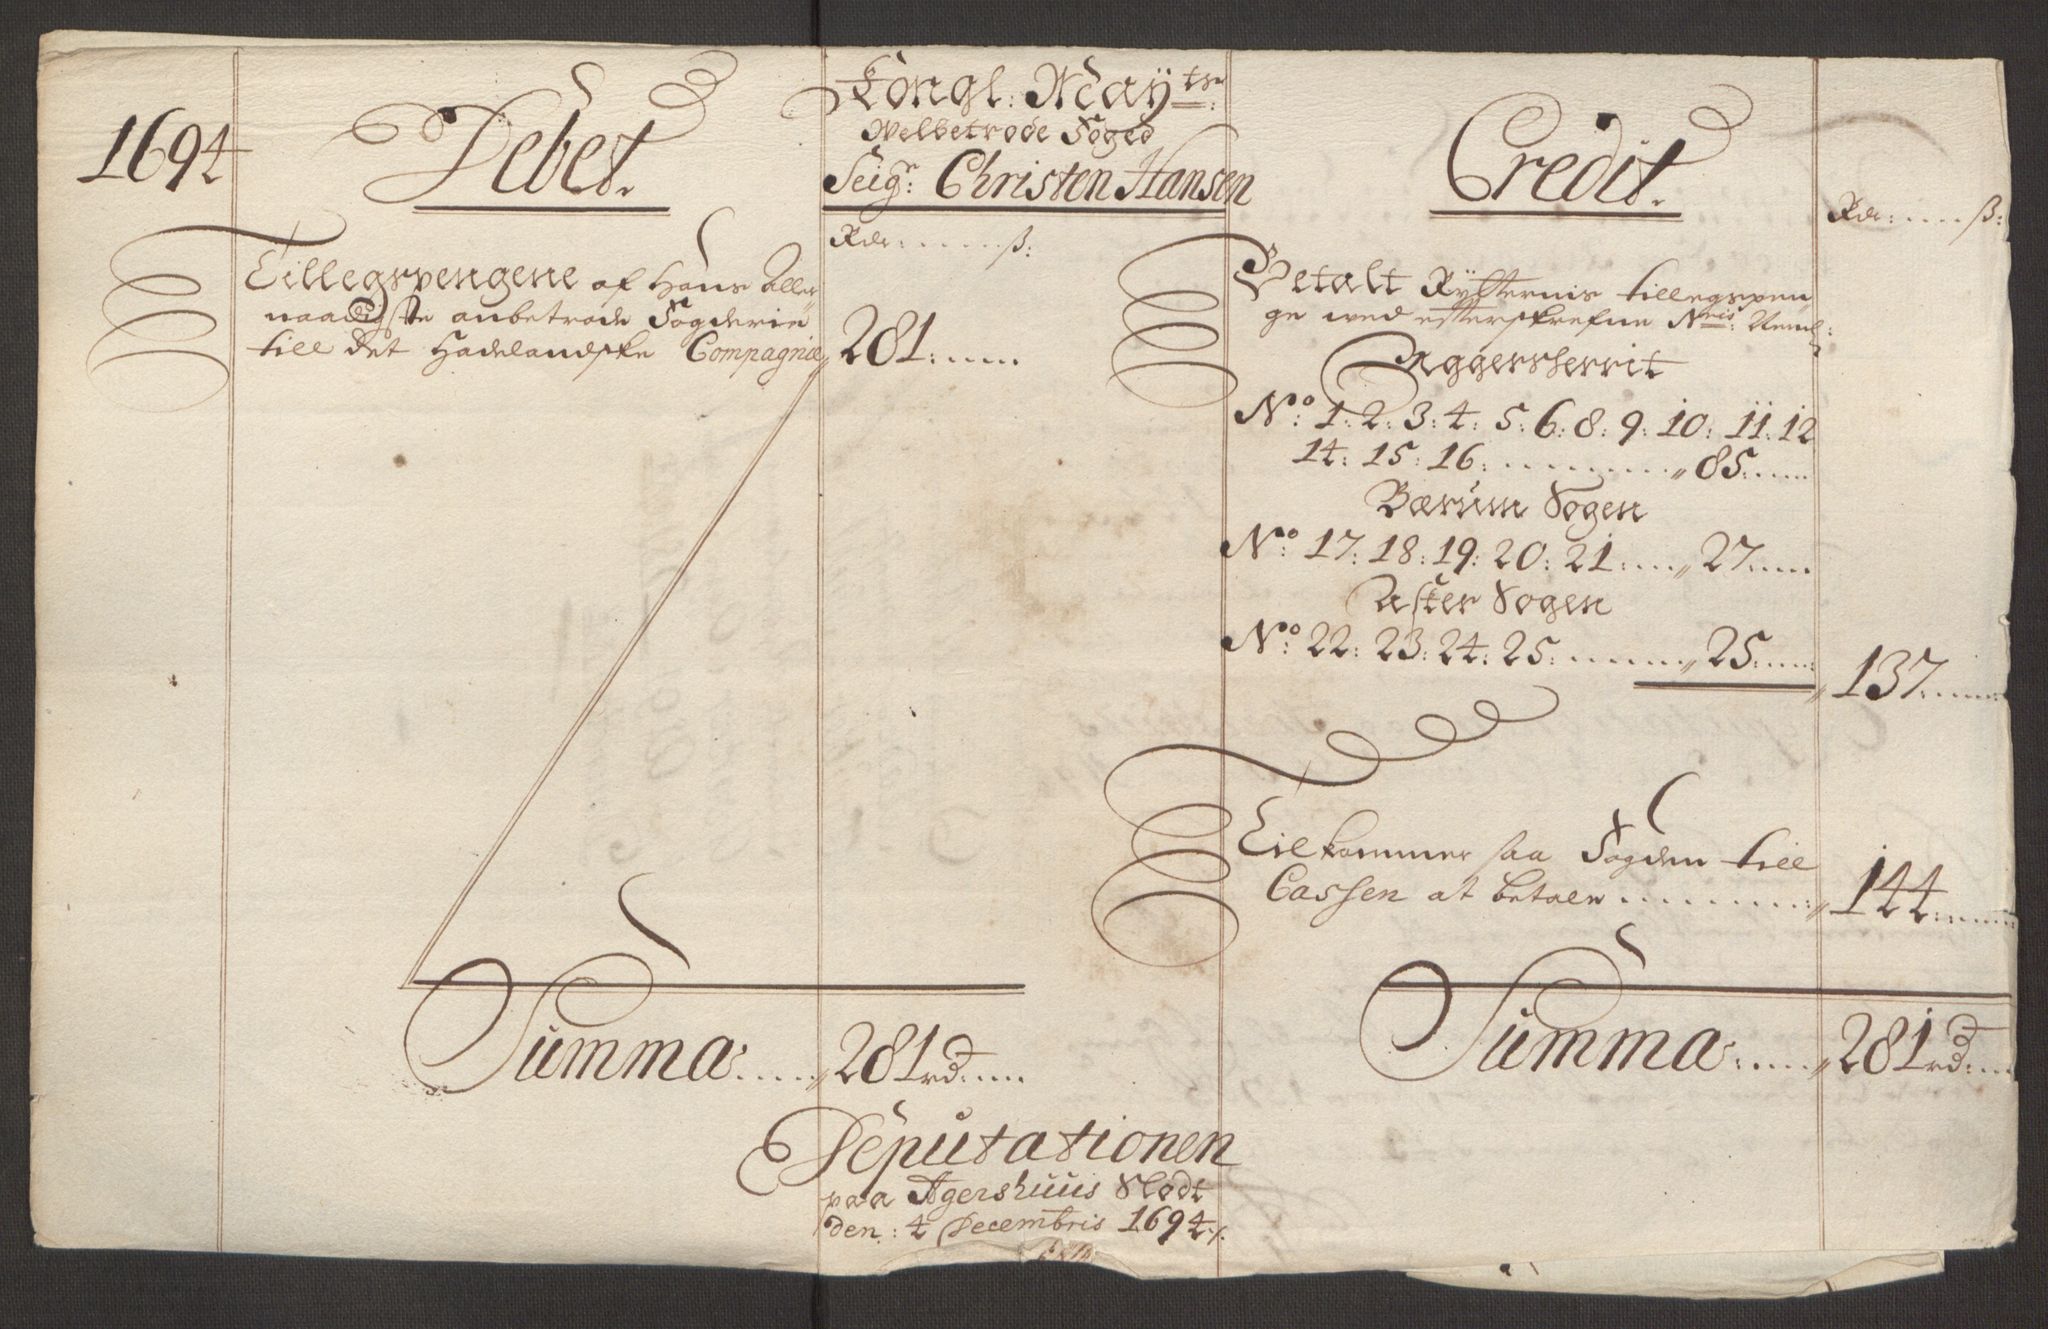 1694
Debet.
Kongl: Mayts:
Welbetrode Foged
Seigr: Christen Hansen
Credit.
Rdr: ..... ß:
Tillegspengene af Hans Aller
naadigste anbetrode Fogderie
till det Hadelandske Compagnie 281: ....
Summa: .... 281 rd: ...
Rdr: .... ß:
Betalt Rytternis tillegspen
ge med efterskrefne Nris: Neml:
Aggersherrit
No: 1: 2: 3: 4: 5: 6: 8: 9: 10: 11: 12
14: 15: 16: ........ 85: ....
Bærum Sogen
No: 17: 18: 19: 20: 21: ... 27: ....
Asker Sogen
No: 22: 23: 24: 25: ...... 25: .... 137: ....
Tilkommer saa Fogden till
Cassen at betale ......... 144: ....
Summa: .... 281 rd: ...
Deputationen
paa Agershuus Slodt
den: 4 Decembris 1694 ./.